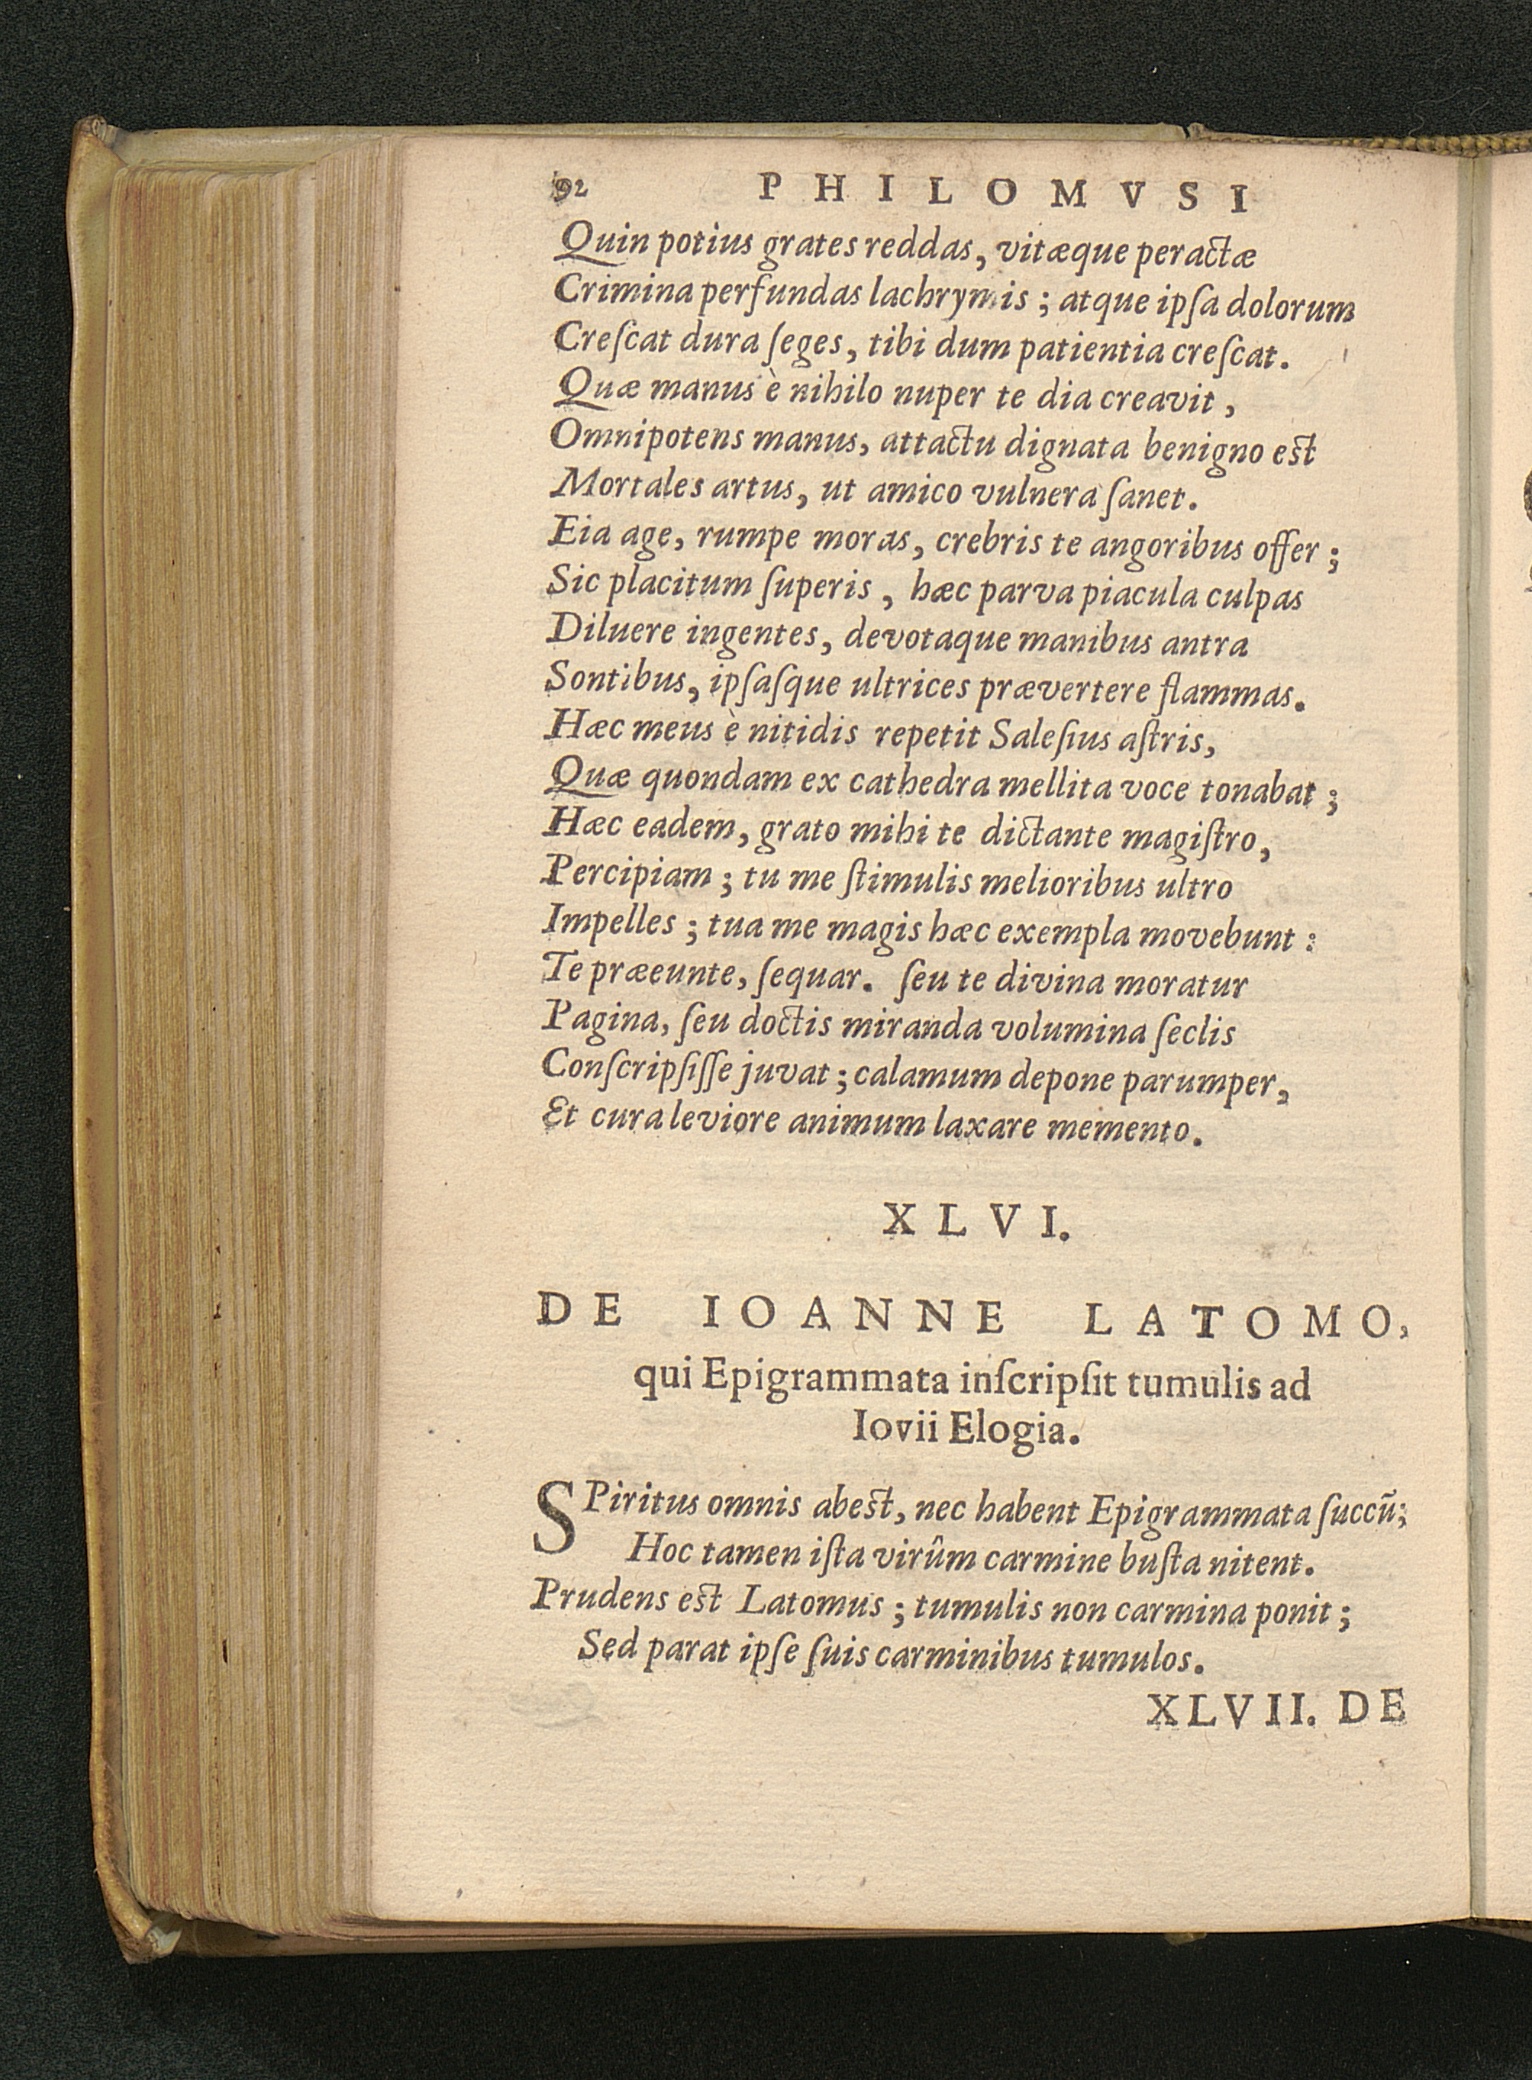 92 PHILOMVSI
Quin potius grates reddas, vitæque peractæ
Crimina perfundas lachrymis; atque ipſa dolorum
Creſcat dura ſeges, tibi dum patientia creſcat.
Quæ manus è nihilo nuper te dia creavit,
Omnipotens manus, attactu dignata benigno est
Mortales artus, ut amico vulnera ſanet.
Eia age, rumpe moras, crebris te angoribus offer;
Sic placitum ſuperis, hæc parva piacula culpas
Diluere ingentes, devotaque manibus antra
Sontibus, ipſaſque ultrices prævertere flammas.
Hæc meus è nitidis repetit Saleſius aſtris,
Quæ quondam ex cathedra mellita voce tonabat;
Hæc eadem, grato mihi te dictante magiſtro,
Percipiam; tu me ſtimulis melioribus ultro
Impelles; tua me magis hæc exempla movebunt:
Te præeunte, ſequar. ſeu te divina moratur
Pagina, ſeu doctis miranda volumina ſeclis
Conſcripſiſſe juvat; calamum depone parumper,
Et cura leviore animum laxare memento.
XLVI.
DE IOANNE LATOMO,
qui Epigrammata inſcripſit tumulis ad
Iovii Elogia.
SPiritus omnis abest, nec habent Epigrammata ſuccū;
Hoc tamen iſta virûm carmine buſta nitent.
Prudens est Latomus; tumulis non carmina ponit;
Sed parat ipſe ſuis carminibus tumulos.
XLVII. DE